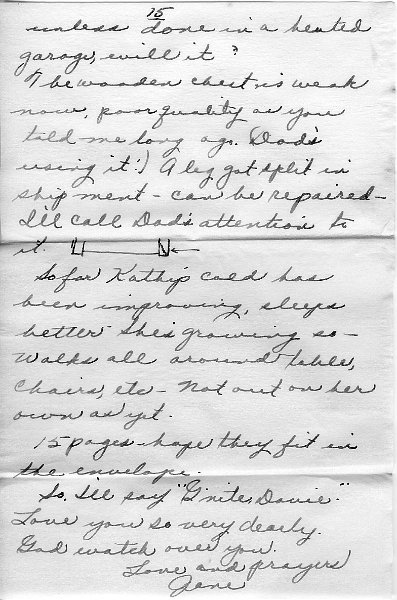 15
unless done in a heated
garage, will it?
The wooden chest is weak
now, poor quality as you
told me long ago. Dad's
using it!) A leg got split in
shipment - can be repaired -
I'll call Dad's attention to
it.
So far Kathi's cold has
been improving, sleeps
better - She's growing so -
Walks all around table,
chairs, etc - Not out on her
own as yet.
15 pages - hope they fit in
the envelope.
So, I'll say "G'nite, Davie."
Love you so very dearly.
God watch over you.
Love and prayers
Jane